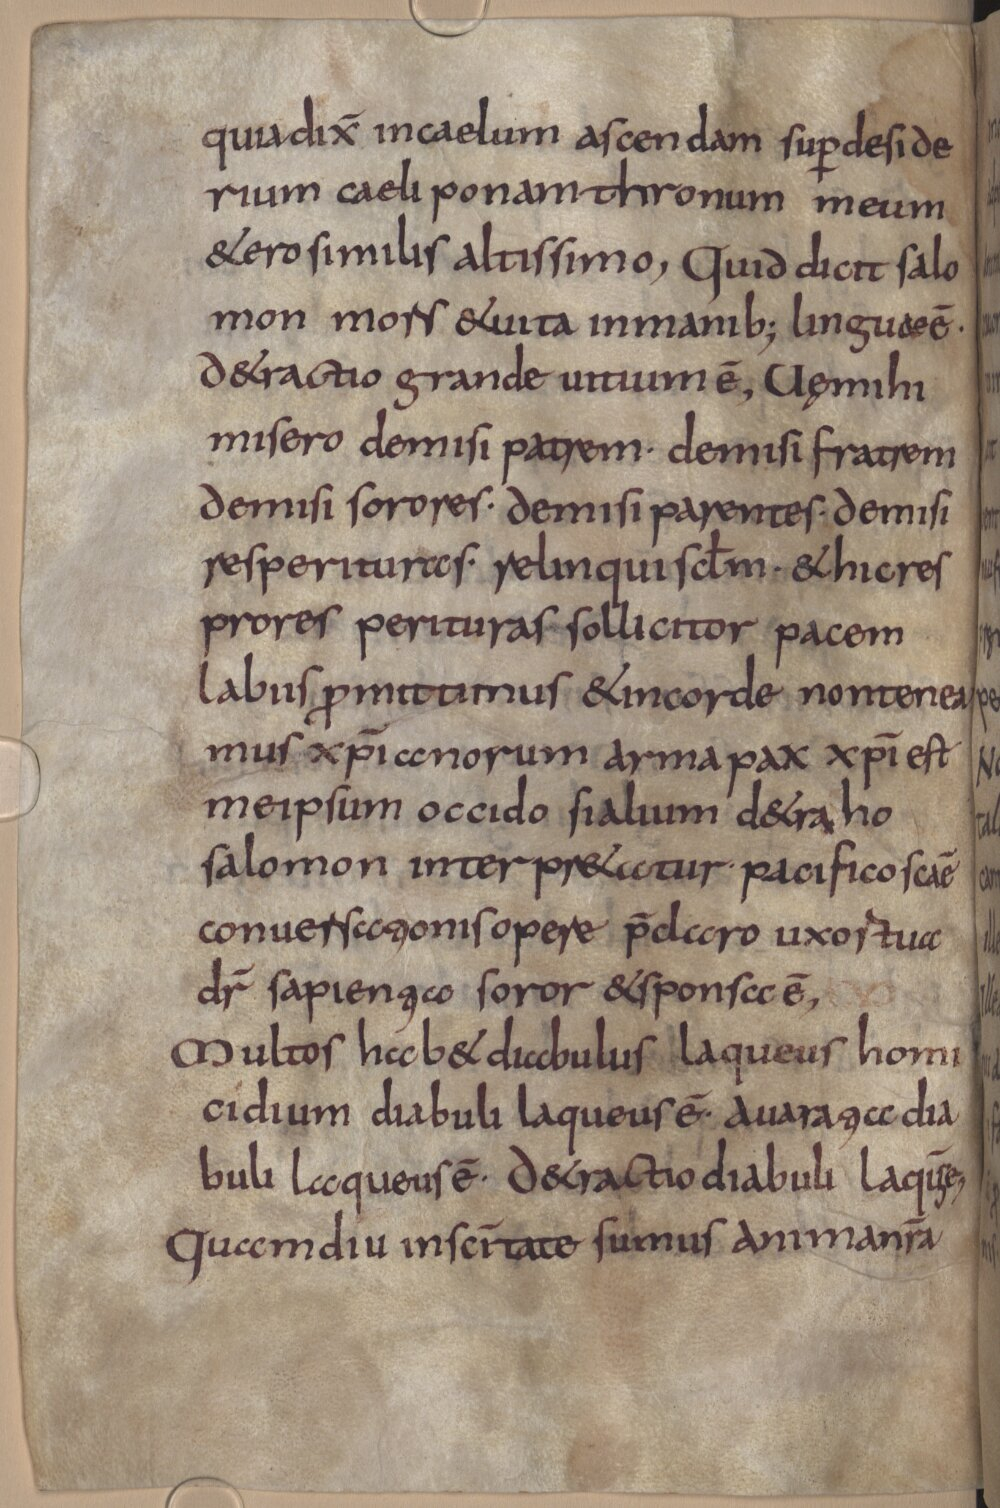 quia dix̄ incaelum ascendam suꝑ deside
rium caeli ponam thronum meum
& ero similis altissimo, Quid dicit salo
mon mors & uita inmanib; linguae ē·
D&ractio grande uitium ē, Uę mihi
misero demisi patrem· demisi fratrem
demisi sorores· demisi parentes· demisi
res perituras· relinqui sc̄lm· & hic res
prores perituras sollicitor pacem
labus ꝓmittimus & incorde non tenea
mus xp̄ianorum arma pax xp̄i est
me ipsum occido si alium d&raho
salomon interpr&atur· pacifico scāe
conuersationis opere p̄claro uxor tua
dr̄ sapientia soror & sponsa ē,
Multos hab& diabulus laqueus homi
cidium diabuli laqueus ē· auaratia dia
buli laqueus ē· D&ractio diabuli laqus ē,
Quamdiu in sc̄ritate sumus anima nr̄a